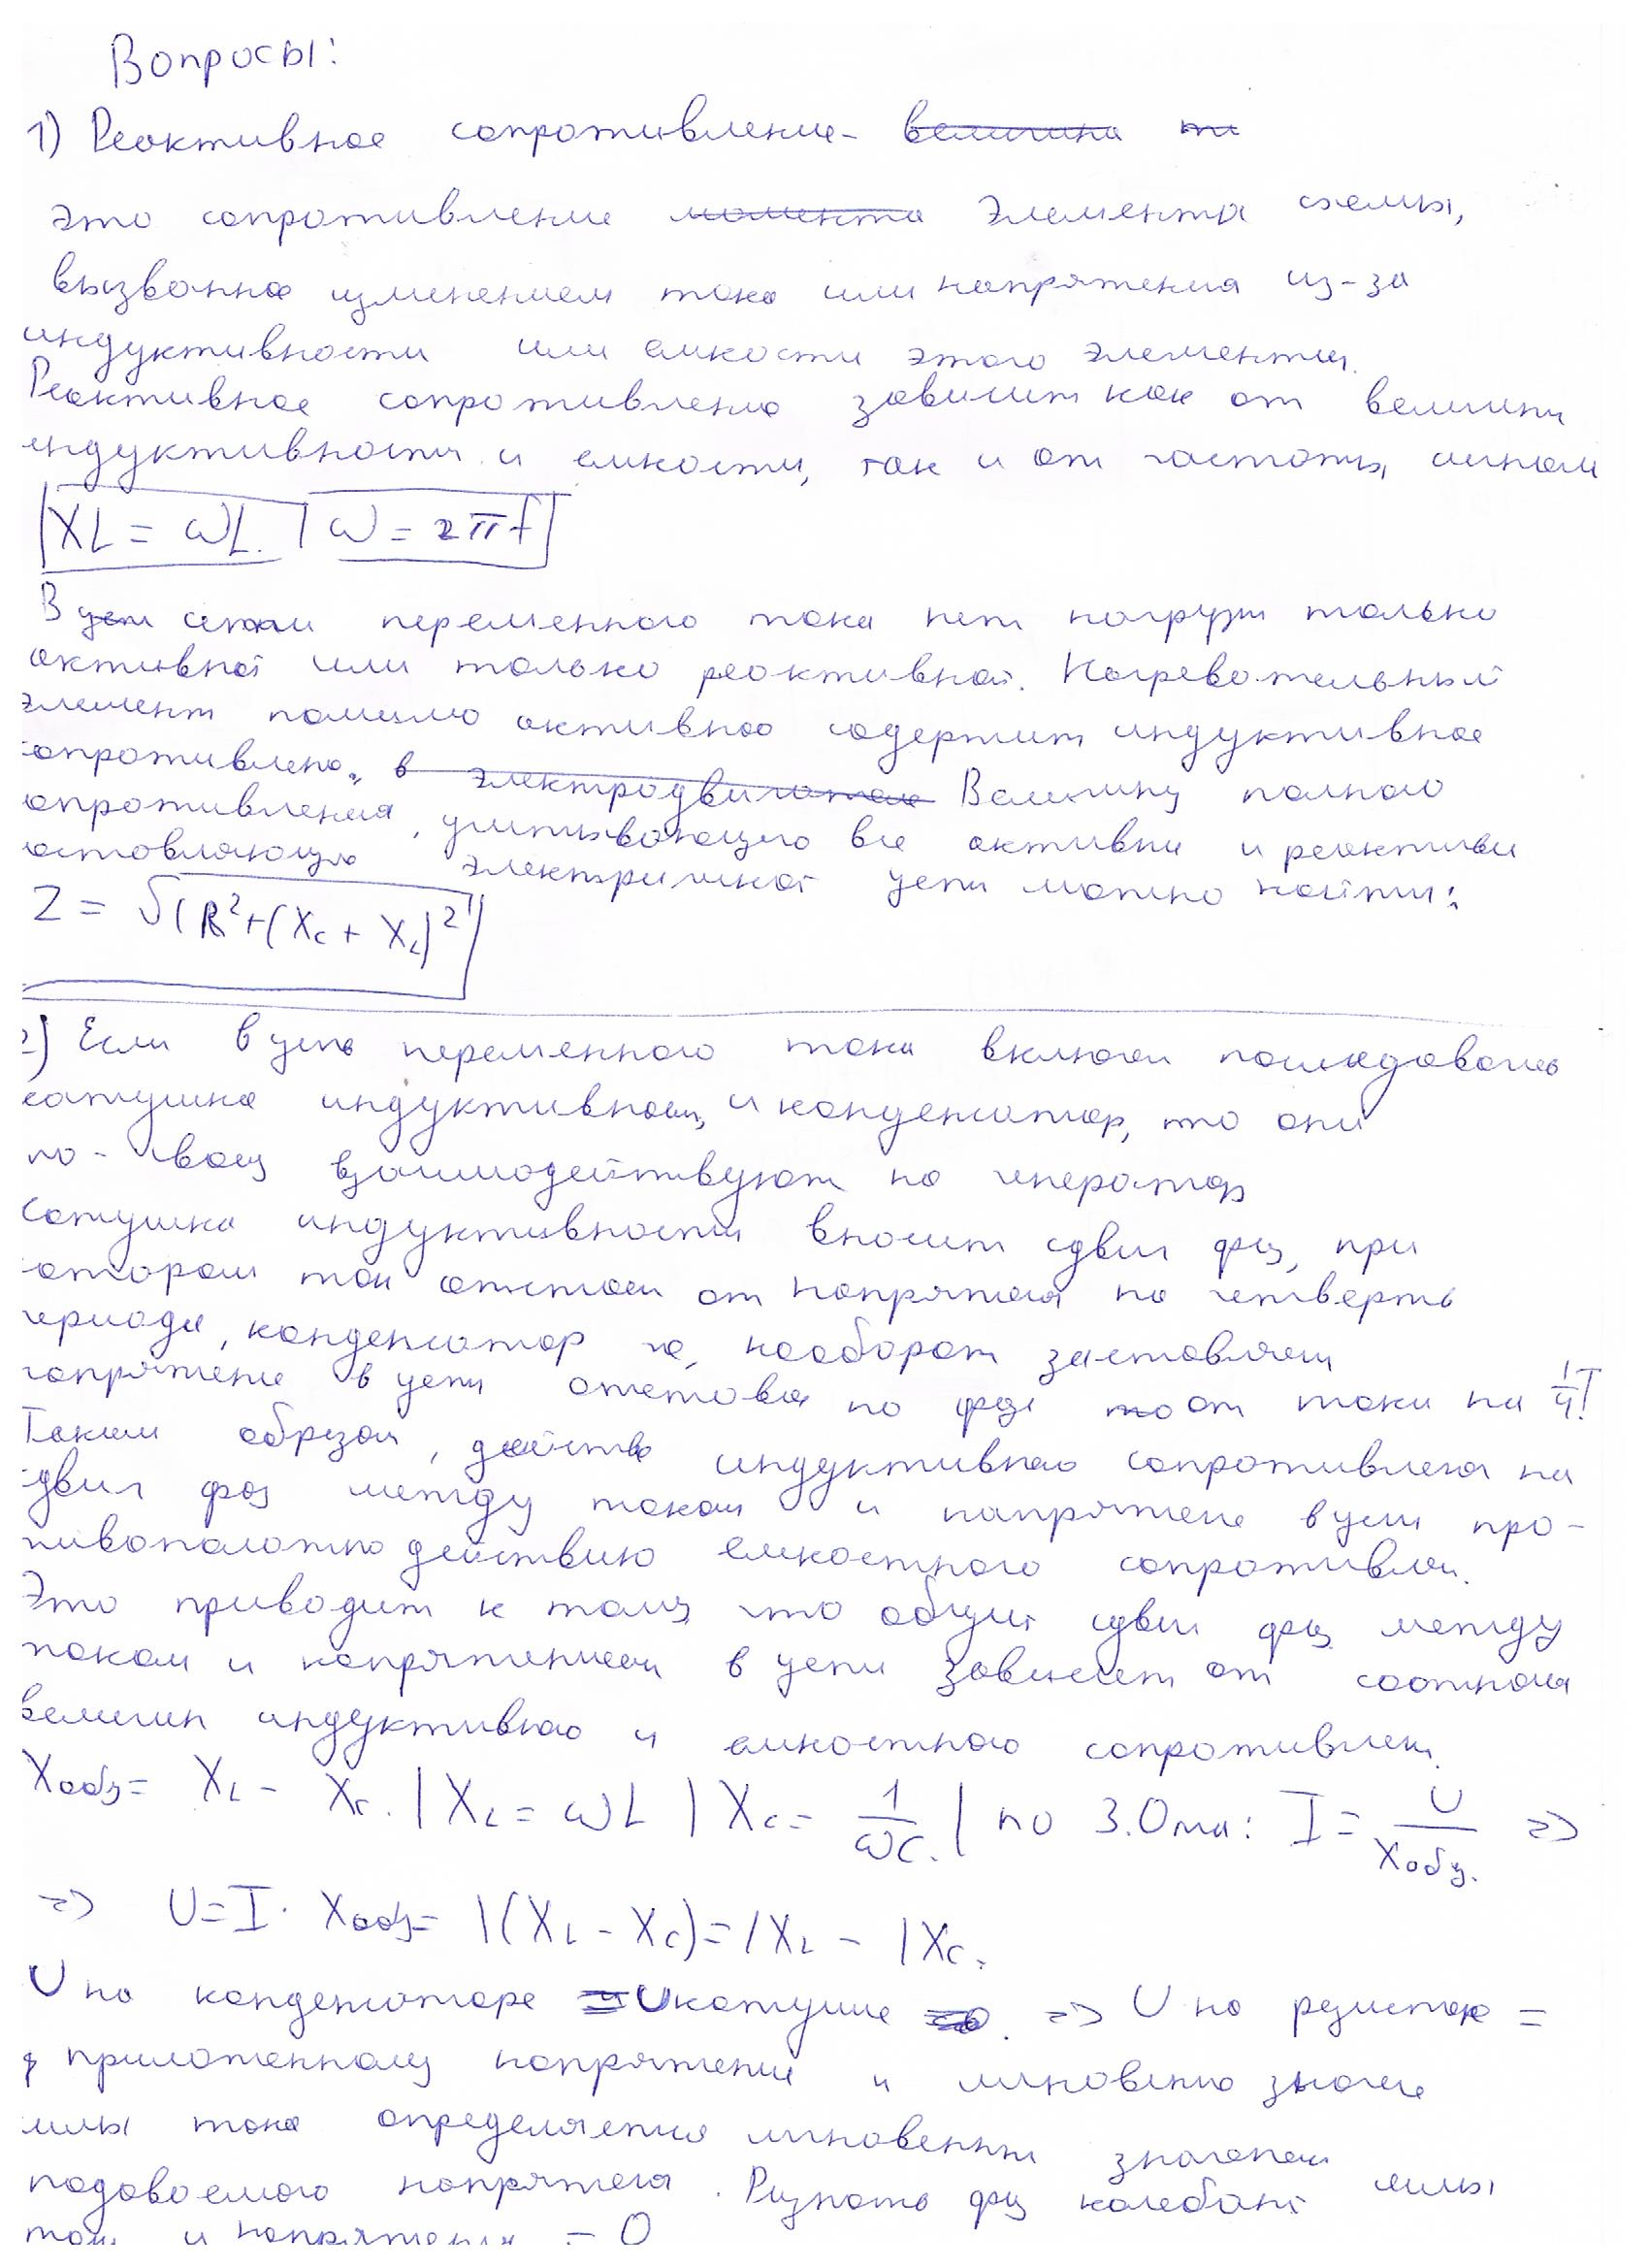 Вопросы:
1) Реактивное сопротивление- величина
это сопротивление момента элемента схемы,
вызванное изменением тока или напряжения из-за
индуктивности или емкости этого элемента.
Реактивное сопротивление зависит как от величины
индуктивности и емкости, так и от частоты
XL = ωL. | ω = 2πf
В цеп сетях переменного тока нет нагрузки только
активной или только реактивной. Нагревательный
элемент помимо активного содержит индуктивное
опротивлено. в электродвигателе Величину полного
опротивления, учитывающего все активни и реактивн
оставляющую электрической цепи можно найти:
Z = √(R²+(Xc + XL)²
2) Если в цепь переменного тока включен последовательно
катушка индуктивности и конденсатор, то они
по-своему взаимодействуют на генератор
Катушка индуктивности вносит сдвиг фаз, при
котором ток отстает от напряжения на четверть
периода, конденсатор же, наоборот заставляет
напряжение в цепи отставать по фазе то от тока на 1/4T
Таким образом, действие индуктивного сопротивления на
сдвиг фаз между током и напряжение в цепи про-
тивоположно действию емкостного сопротивлен.
Это приводит к тому что общий сдвиг фаз между
током и напряжением в цепи зависит от соотнош
величин индуктивного и емкостного сопротивлен.
Xобщ= XL - Xc. | XL = ωL | Xc = 1/ωC. | по З.Ома: I = U/Xобщ. =>
=> U=I· Xобщ= I(XL - Xc) = IXL - IXc.
U на конденсаторе = U катушке => U на резисторе =
приложенному напряжению и мгновенно значен
силы тока определяется мгновенным значением
подаваемого напряжения. Разность фаз колебаний силы
тока и напряжения = 0